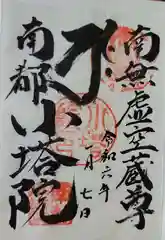 南無虚空蔵尊
令和六年
月七日
南都小塔院